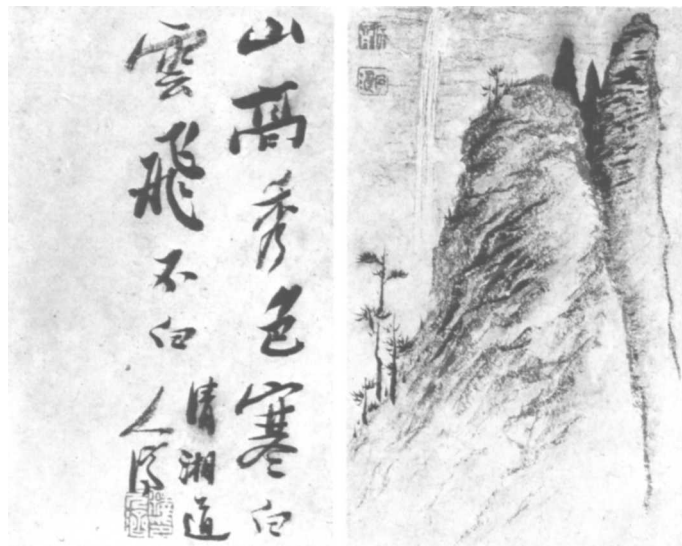 山高秀色寒白
雲飛不白
清湘道
人濟